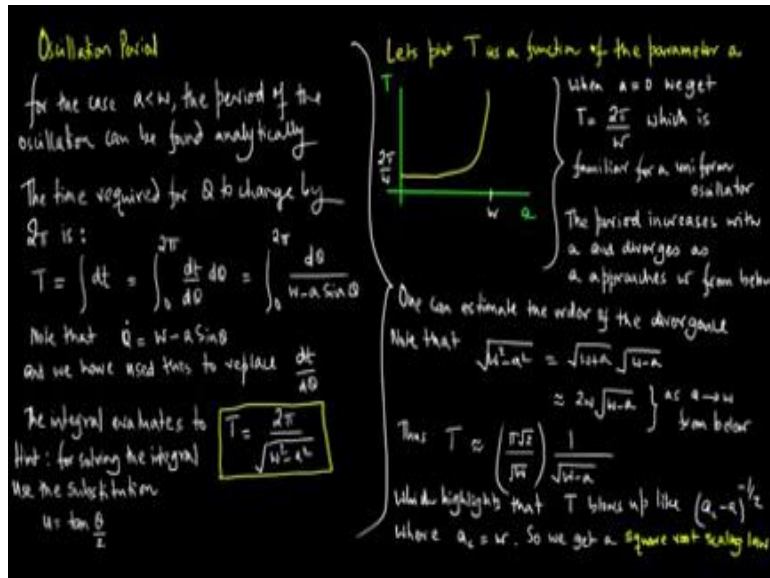 Oscillation Period
for the case a<w, the period of the
oscillation can be found analytically
The time required for θ to change by
2π is:
T = ∫ dt = ∫₀^2π dt/dθ dθ = ∫₀^2π dθ/(w-a sinθ)
Note that θ̇ = w-a sinθ
and we have used this to replace dt/dθ
The integral evaluates to
T = 2π/√(w²-a²)
Hint: for solving the integral
use the substitution
u = tan θ/2
Lets plot T as a function of the parameter a
T
2π/w
w
a
When a=0 we get
T = 2π/w which is
familiar for a uniform
oscillator
The period increases with
a and diverges as
a approaches w from below
One can estimate the order of the divergence
Note that √(w²-a²) = √(w+a) √(w-a)
≈ 2w √(w-a) } as a→w
from below
Thus T ≈ (π√2/√w) 1/√(w-a)
Which highlights that T blows up like (a_c-a)^-1/2
where a_c = w. So we get a square root scaling law